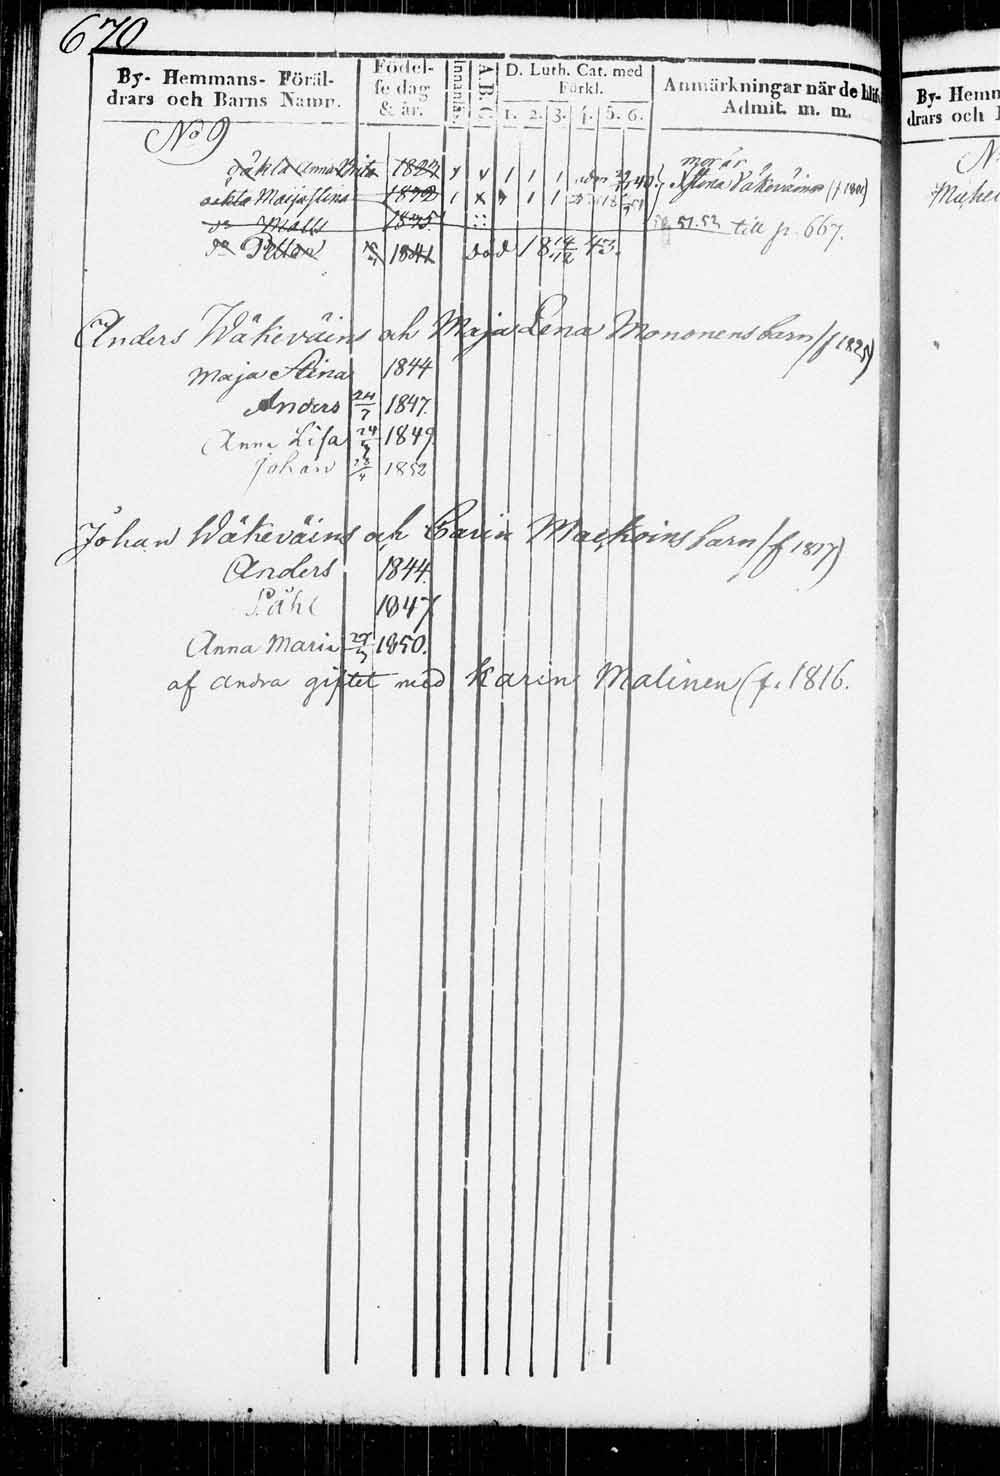 670
By- Hemmans- Föräl-
drars och Barns Namn.
Födel-
se dag
& år.
Innanläs.
A. B. C.
D. Luth. Cat. med
Förkl.
1. 2. 3. 4. 5. 6.
Anmärkningar när de blif
Admit. m. m.
No 9
oäkta Anna Brita 1827 1 1 1 mor är Stina Wäkeväinen (f 1800)
oäkta Maija Stina 1832 1 x 1 1
do Matts 1835 51. 53 till p. 667.
do Petter 1841 död 18 14/12 43.
Anders Wäkeväins och Maja Lena Mononens barn (f 1825)
Maja Stina 1844
Anders 24/7 1847.
Anna Lisa 24 1849
Johan 28/4 1852
Johan Wäkeväins och Carin Mackoins barn (f 1817)
Anders 1844.
Påhl 1847
Anna Maria 1850.
af andra giftet med Karin Malinen (f. 1816.
By- Hemm
drars och
N
Michel